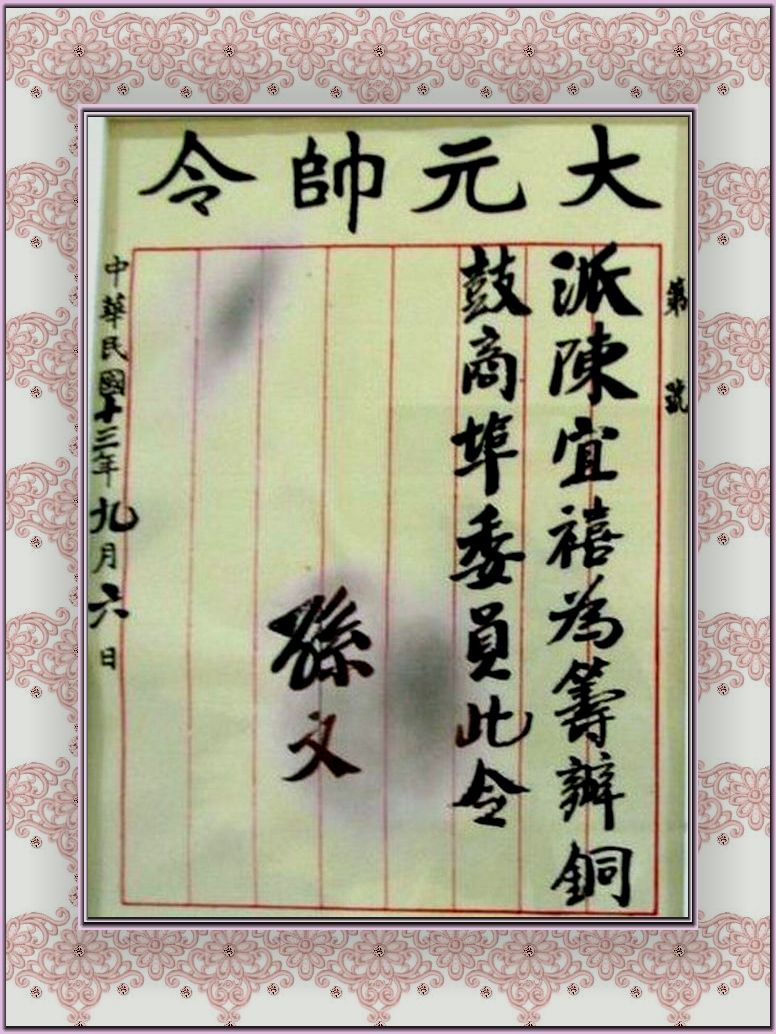 大元帥令
第 號
派陳宜禧為籌辦銅
鼓商埠委員此令
孫文
中華民國十三年九月六日